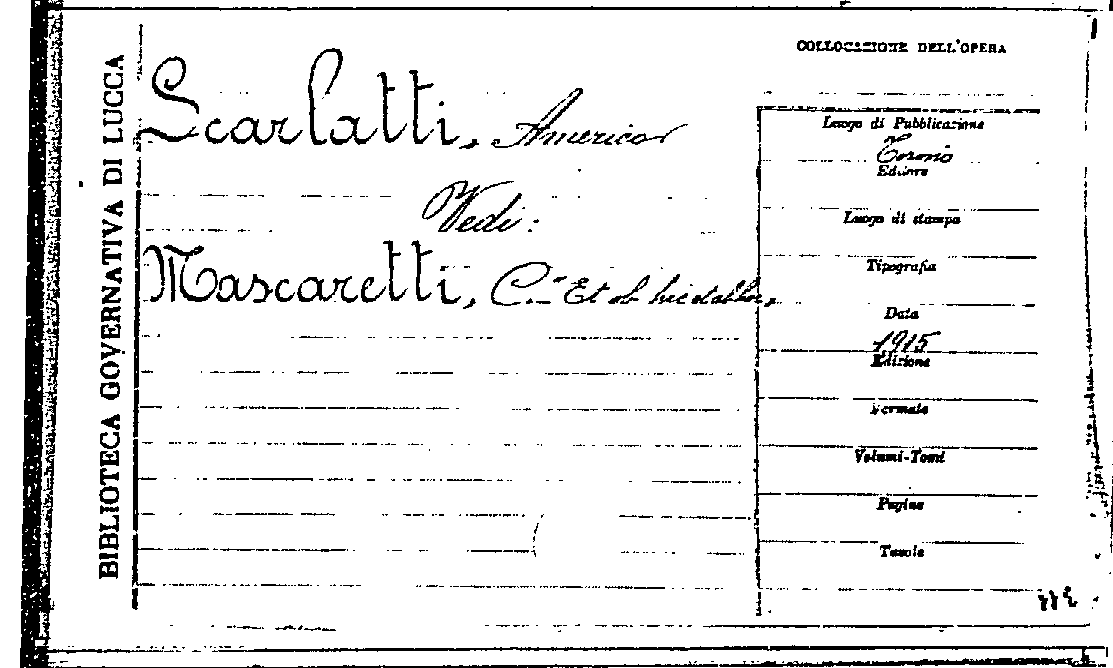 BIBLIOTECA GOVERNATIVA DI LUCCA
COLLOCAZIONE DELL'OPERA
Scarlatti, Americo
Vedi:
Mascaretti, C. - Et ab hic et ab hoc,
Luogo di Pubblicazione
Torino
Editore
Luogo di stampa
Tipografia
Data
1915
Edizione
Formato
Volumi-Tomi
Pagine
Tavole